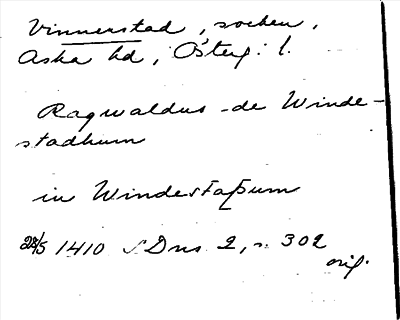 Vinnerstad, socken,
Aska hd, Österg: l.
Ragwaldus de Winde-
stadhum
in Windestaþum
1410 SDns 2, s. 302
orig.